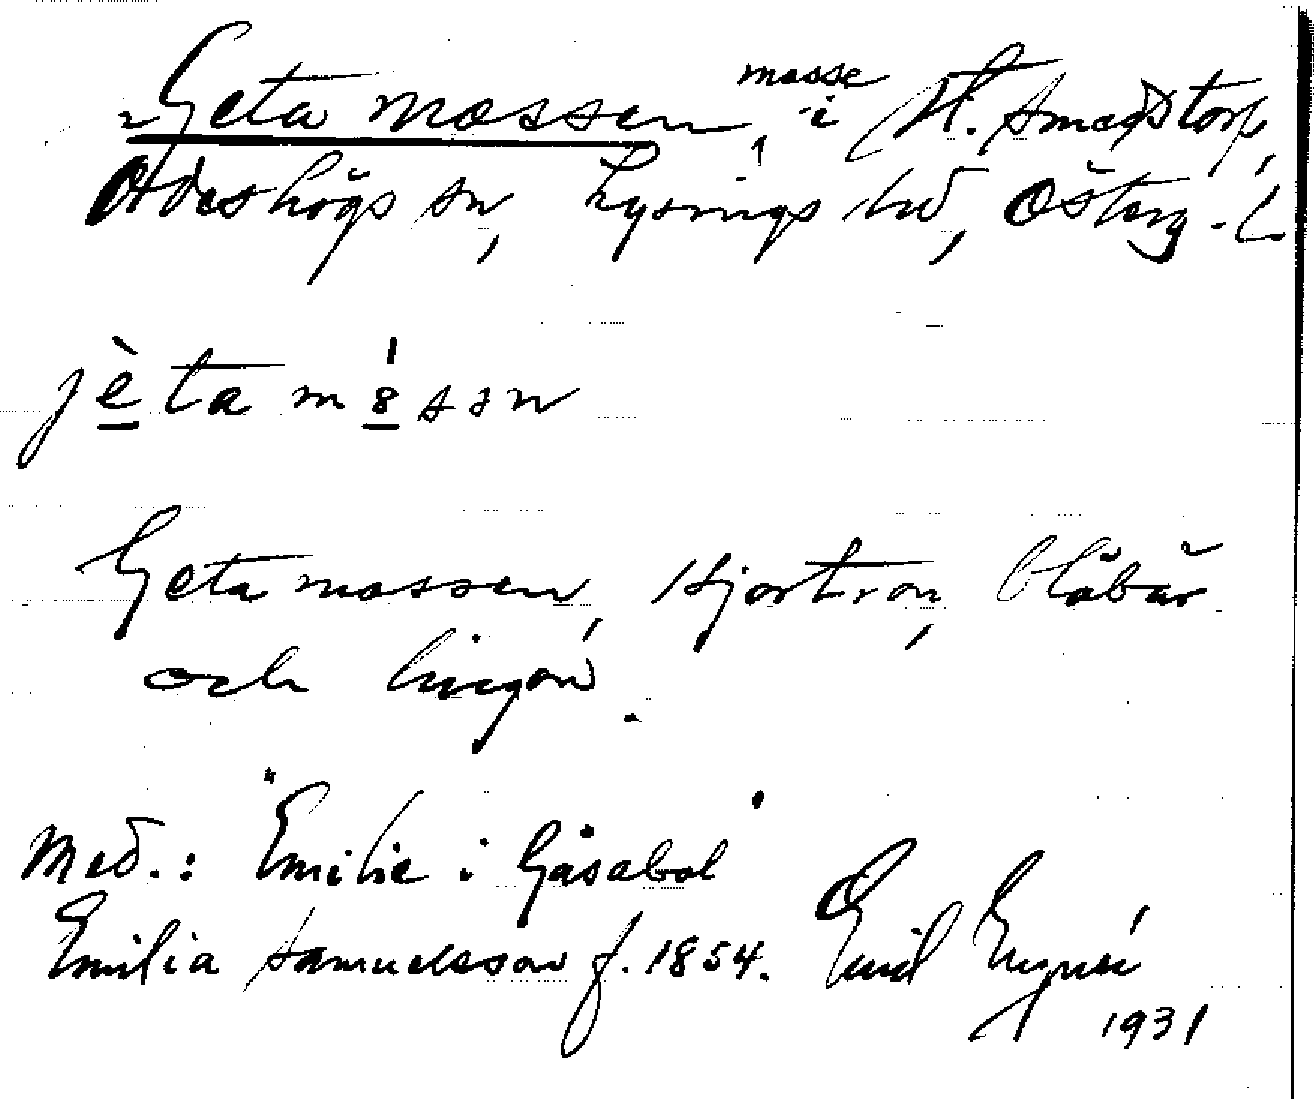 Getamossen, mosse i St. Smedstorp,
Ödeshögs sn, Lysings hd, Österg. L.
jèta m8́ssn
Getamossen, Hjortron, blåbär
och lingon.
Med.: "Emilie i Gåsabol"
Emilia Samuelsson f. 1854. Emil
1931